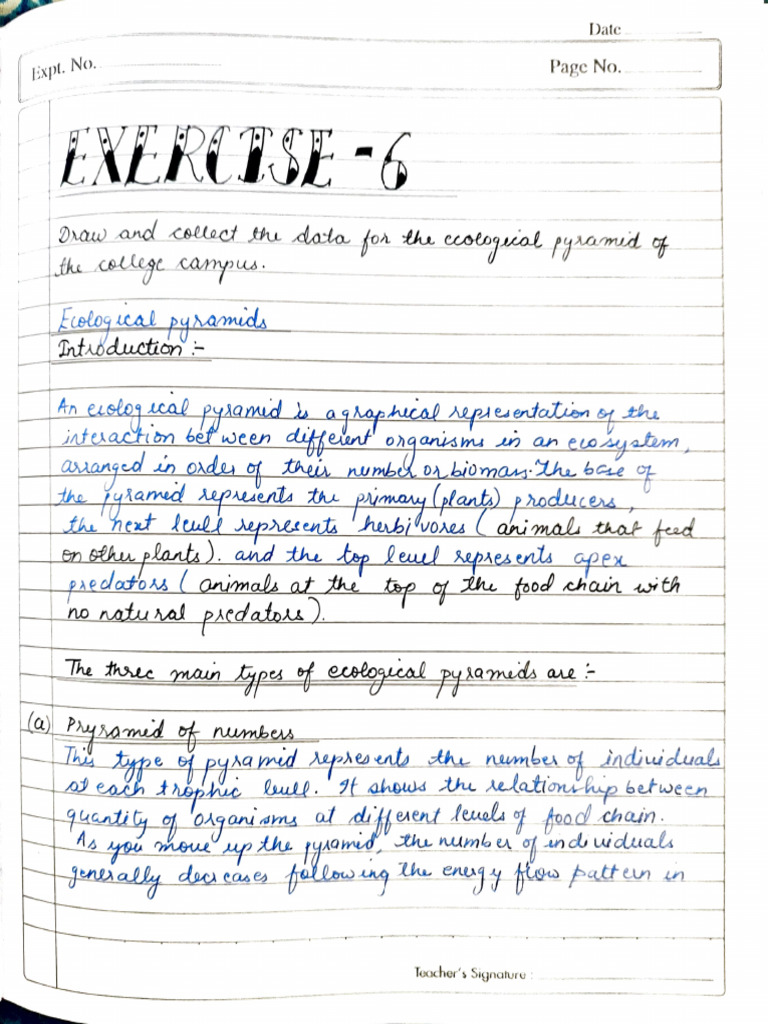 Date
Expt. No.
Page No.
EXERCISE - 6
Draw and collect the data for the ecological pyramid of
the college campus.
Ecological pyramids
Introduction :-
An ecological pyramid is a graphical representation of the
interaction between different organisms in an ecosystem,
arranged in order of their number or biomass. The base of
the pyramid represents the primary (plants) producers,
the next level represents herbivores ( animals that feed
on other plants). and the top level represents apex
predators ( animals at the top of the food chain with
no natural predators).
The three main types of ecological pyramids are :-
(a) Pryramid of numbers
This type of pyramid represents the number of individuals
at each trophic level. It shows the relationship between
quantity of organisms at different levels of food chain.
As you move up the pyramid, the number of individuals
generally decreases following the energy flow pattern in
Teacher's Signature :